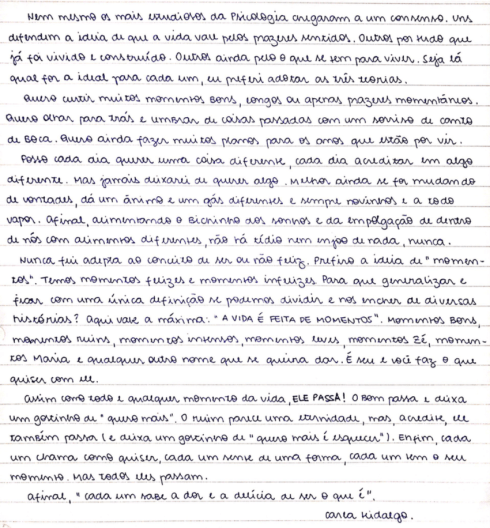 Nem mesmo os mais estudiosos da Psicologia chegaram a um consenso. Uns
defendem a ideia de que a vida vale pelos prazeres sentidos. Outros por tudo que
já foi vivido e construído. Outros ainda pelo o que se tem para viver. Seja lá
qual for a ideal para cada um, eu preferi adotar as três teorias.
Quero curtir muitos momentos bons, longos ou apenas prazeres momentâneos.
Quero olhar para trás e lembrar de coisas passadas com um sorriso de canto
de boca. Quero ainda fazer muitos planos para os anos que estão por vir.
Posso cada dia querer uma coisa diferente, cada dia acreditar em algo
diferente. Mas jamais deixarei de querer algo. Melhor ainda se for mudando
de vontades, dá um ânimo e um gás diferentes e sempre novinhos e a todo
vapor. Afinal, alimentando o bichinho dos sonhos e da empolgação de dentro
de nós com alimentos diferentes, não há tédio nem enjoo de nada, nunca.
Nunca fui adepta ao conceito de ser ou não feliz. Prefiro a ideia de "momen-
tos". Temos momentos felizes e momentos infelizes. Para que generalizar e
ficar com uma única definição se podemos dividir e nos encher de diversas
histórias? Aqui vale a máxima: "A VIDA É FEITA DE MOMENTOS". Momentos bons,
momentos ruins, momentos intensos, momentos leves, momentos Zé, momen-
tos Maria e qualquer outro nome que se queira dar. É seu e você faz o que
quiser com ele.
Assim como todo e qualquer momento da vida, ELE PASSA! O bom passa e deixa
um gostinho de "quero mais". O ruim parece uma eternidade, mas, acredite, ele
também passa (e deixa um gostinho de "quero mais é esquecer"). Enfim, cada
um chama como quiser, cada um sente de uma forma, cada um tem o seu
momento. Mas todos eles passam.
Afinal, "cada um sabe a dor e a delícia de ser o que é".
Carla Hidalgo.